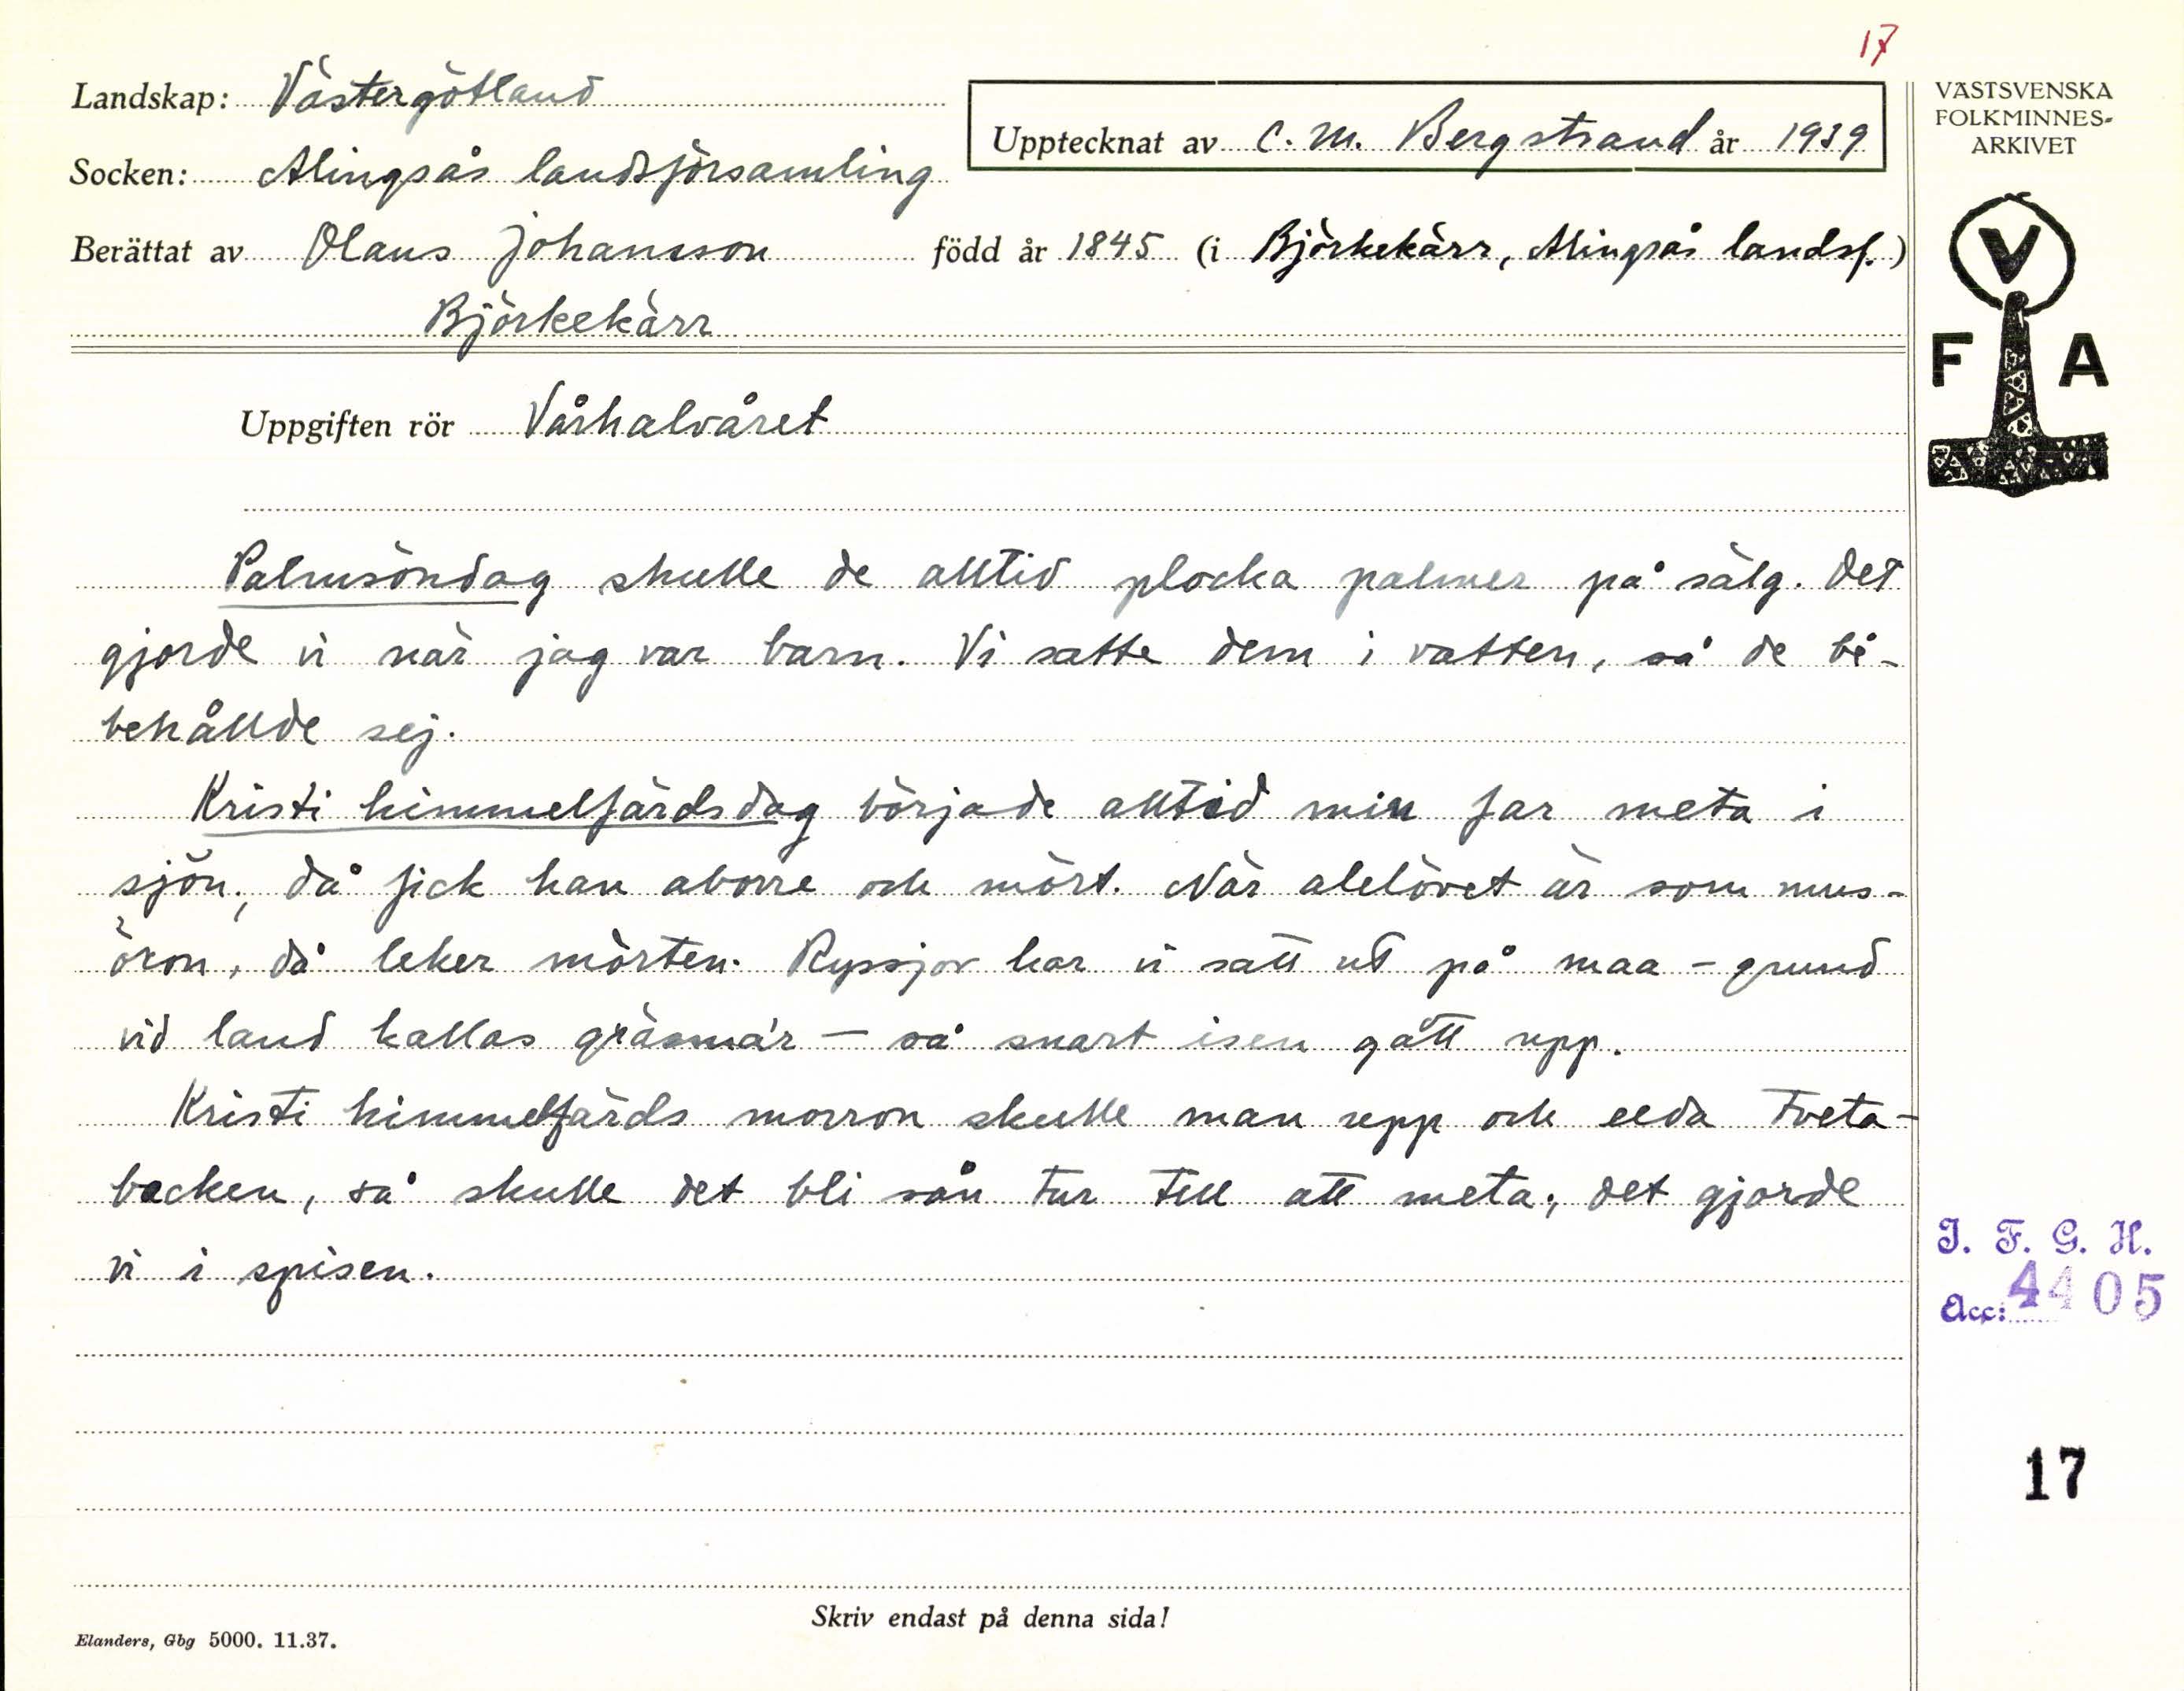 17
Landskap: Västergötland
Upptecknat av C. M. Bergstrand år 1939
Socken: Alingsås landsförsamling
Berättat av Olaus Johansson född år 1845 (i Björkekärr, Alingsås landsf.)
Björkekärr
Uppgiften rör Vårhalvåret
Palmsöndag skulle de alltid plocka palmer på sälg. Det
gjorde vi när jag var barn. Vi satte dem i vatten, så de bi-
behållde sej.
Kristi himmelfärdsdag började alltid min far meta i
sjön; då fick han aborre och mört. När alelövet är som mus-
öron, då leker mörten. Ryssjor har vi satt ut på maa - grund
vid land kallas gräsmar - så snart isen gått upp.
Kristi himmelfärds morron skulle man upp och eeda Tveta-
backen, så skulle det bli sån tur till att meta; det gjorde
vi i spisen.
Skriv endast på denna sida!
Elanders, Gbg 5000. 11.37.
VÄSTSVENSKA
FOLKMINNES-
ARKIVET
V
F A
I. F. G. H.
Acc: 4405
17